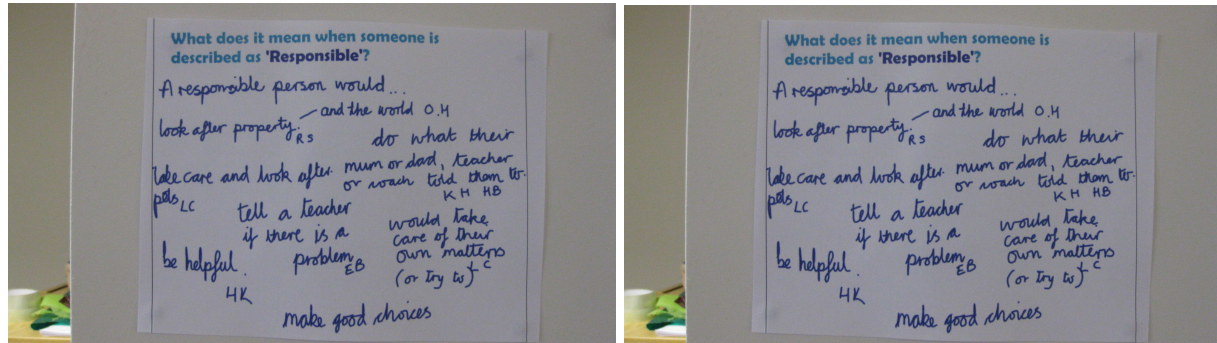 What does it mean when someone is
described as 'Responsible'?
A responsible person would...
and the world O.H
look after property. RS
do what their
mum or dad, teacher
or coach told them to.
KH HB
take care and look after
pets LC
tell a teacher
if there is a
problem EB
would take
care of their
own matters
(or try to) LC
be helpful.
HK
make good choices
What does it mean when someone is
described as 'Responsible'?
A responsible person would...
and the world O.H
look after property. RS
do what their
mum or dad, teacher
or coach told them to.
KH HB
take care and look after
pets LC
tell a teacher
if there is a
problem EB
would take
care of their
own matters
(or try to) LC
be helpful.
HK
make good choices